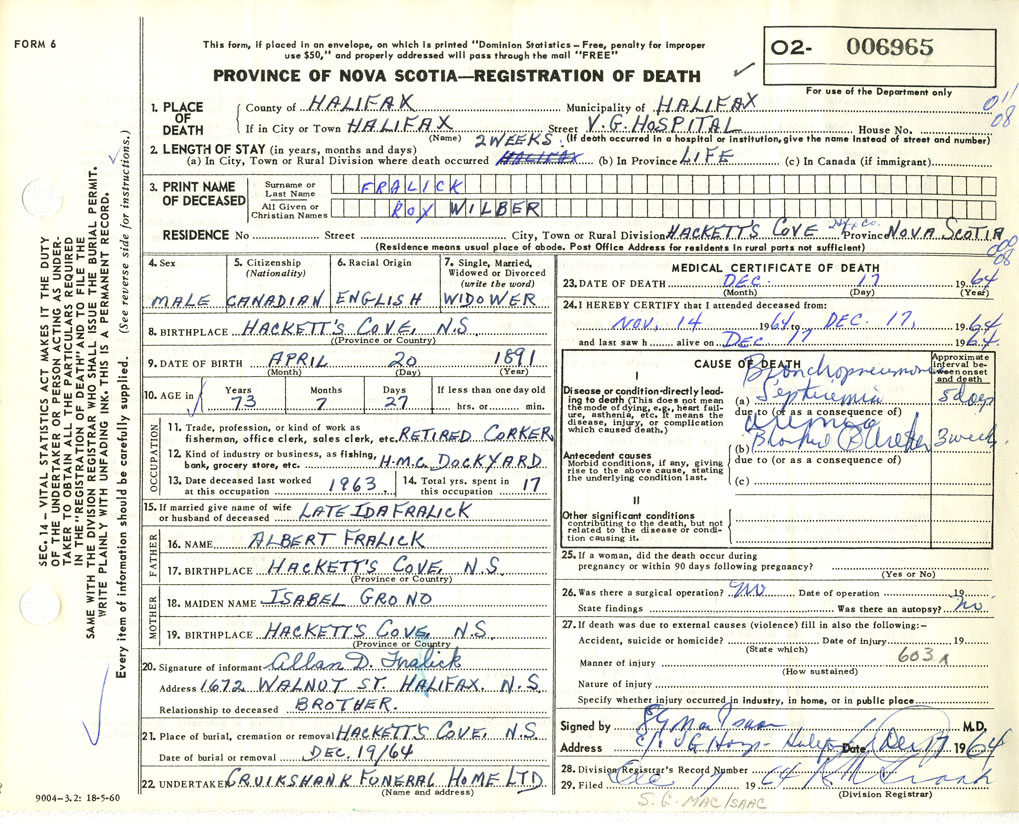 FORM 6
This form, if placed in an envelope, on which is printed "Dominion Statistics – Free, penalty for improper
use $50," and properly addressed will pass through the mail "FREE"
PROVINCE OF NOVA SCOTIA—REGISTRATION OF DEATH
O2- 006965
For use of the Department only
011
08
1. PLACE OF DEATH
County of HALIFAX Municipality of HALIFAX
If in City or Town HALIFAX Street V.G. HOSPITAL House No.
(Name) (If death occurred in a hospital or institution, give the name instead of street and number)
2. LENGTH OF STAY (in years, months and days) 2 WEEKS
(a) In City, Town or Rural Division where death occurred HALIFAX (b) In Province LIFE (c) In Canada (if immigrant)
3. PRINT NAME OF DECEASED
Surname or Last Name FRALICK
All Given or Christian Names ROY WILBER
RESIDENCE No Street City, Town or Rural Division HACKETTS COVE Hfx. Co. Province NOVA SCOTIA
(Residence means usual place of abode. Post Office Address for residents in rural parts not sufficient)
000
08
4. Sex MALE
5. Citizenship (Nationality) CANADIAN
6. Racial Origin ENGLISH
7. Single, Married, Widowed or Divorced (write the word) WIDOWER
8. BIRTHPLACE HACKETT'S COVE, N.S.
(Province or Country)
9. DATE OF BIRTH APRIL 20 1891
(Month) (Day) (Year)
10. AGE in Years 73 Months 7 Days 27 If less than one day old hrs. or min.
OCCUPATION
11. Trade, profession, or kind of work as fisherman, office clerk, sales clerk, etc. RETIRED CORKER
12. Kind of industry or business, as fishing, bank, grocery store, etc. H.M.C. DOCKYARD
13. Date deceased last worked at this occupation 1963
14. Total yrs. spent in this occupation 17
15. If married give name of wife or husband of deceased LATE IDA FRALICK
FATHER
16. NAME ALBERT FRALICK
17. BIRTHPLACE HACKETT'S COVE, N.S.
(Province or Country)
MOTHER
18. MAIDEN NAME ISABEL GRONO
19. BIRTHPLACE HACKETT'S COVE, N.S.
(Province or Country)
20. Signature of informant Allan D. Fralick
Address 1672 WALNUT ST. HALIFAX. N.S.
Relationship to deceased BROTHER.
21. Place of burial, cremation or removal HACKETT'S COVE, N.S.
Date of burial or removal DEC. 19/64
22. UNDERTAKER CRUIKSHANK FUNERAL HOME LTD
(Name and address)
MEDICAL CERTIFICATE OF DEATH
23. DATE OF DEATH DEC. 17 64
(Month) (Day) (Year)
24. I HEREBY CERTIFY that I attended deceased from:
NOV. 14 1964 to DEC. 17, 1964
and last saw h alive on DEC 17 1964.
CAUSE OF DEATH
Approximate interval between onset and death
I
Disease or condition directly leading to death (This does not mean the mode of dying, e.g., heart failure, asthenia, etc. It means the disease, injury, or complication which caused death.)
Bronchopneumonia
(a) Septicemia 5 days
due to (or as a consequence of)
uremia
(b) Blocked Ureter 3 weeks
Antecedent causes
Morbid conditions, if any, giving rise to the above cause, stating the underlying condition last.
due to (or as a consequence of)
(c)
II
Other significant conditions
contributing to the death, but not related to the disease or condition causing it.
25. If a woman, did the death occur during
pregnancy or within 90 days following pregnancy?
(Yes or No)
26. Was there a surgical operation? No Date of operation 19
State findings Was there an autopsy? No.
27. If death was due to external causes (violence) fill in also the following:-
Accident, suicide or homicide? Date of injury 19
(State which) 603 x
Manner of injury
(How sustained)
Nature of injury
Specify whether injury occurred in industry, in home, or in public place
Signed by S G MacIsaac M.D,
Address c/o V G Hosp - Halifax Date Dec 17 1964
28. Division Registrar's Record Number
29. Filed Dec 19 1964
(Division Registrar)
S. G. MAC/SAAC
9004-3.2: 18-5-60
SEC. 14 – VITAL STATISTICS ACT MAKES IT THE DUTY
OF THE UNDERTAKER OR PERSON ACTING AS UNDER-
TAKER TO OBTAIN ALL THE PARTICULARS REQUIRED
IN THE "REGISTRATION OF DEATH" AND TO FILE THE
SAME WITH THE DIVISION REGISTRAR WHO SHALL ISSUE THE BURIAL PERMIT.
WRITE PLAINLY WITH UNFADING INK. THIS IS A PERMANENT RECORD.
Every item of information should be carefully supplied. (See reverse side for instructions.)